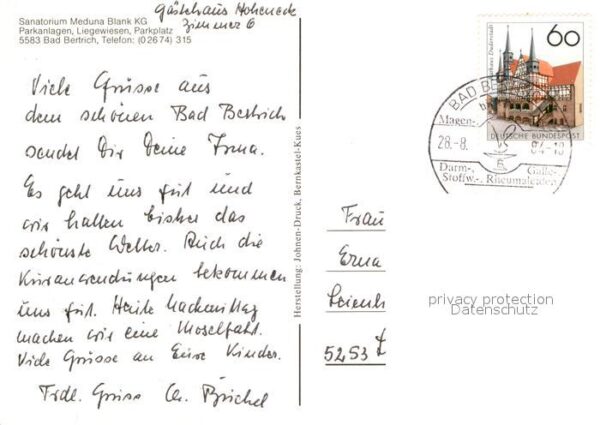 Gästehaus Hoheneck
Zimmer 6
Sanatorium Meduna Blank KG
Parkanlagen, Liegewiesen, Parkplatz
5583 Bad Bertrich, Telefon: (02674) 315
Viele Grüsse aus
dem schönen Bad Bertrich
sendet Dir Deine Irma.
Es geht uns gut und
wir hatten bisher das
schönste Wetter. Auch die
Kuranwendungen bekommen
uns gut. Heute Nachmittag
machen wir eine Moselfahrt.
Viele Grüsse an Eure Kinder.
Frdl. Gruss
Herstellung: Johnen-Druck, Bernkastel-Kues
60
Rathaus Duderstadt
DEUTSCHE BUNDESPOST
BAD
Magen-,
28.-8. 84-18
Darm-, Galle-,
Stoffw.-, Rheumaleiden
Frau
Erna
5253
privacy protection
Datenschutz